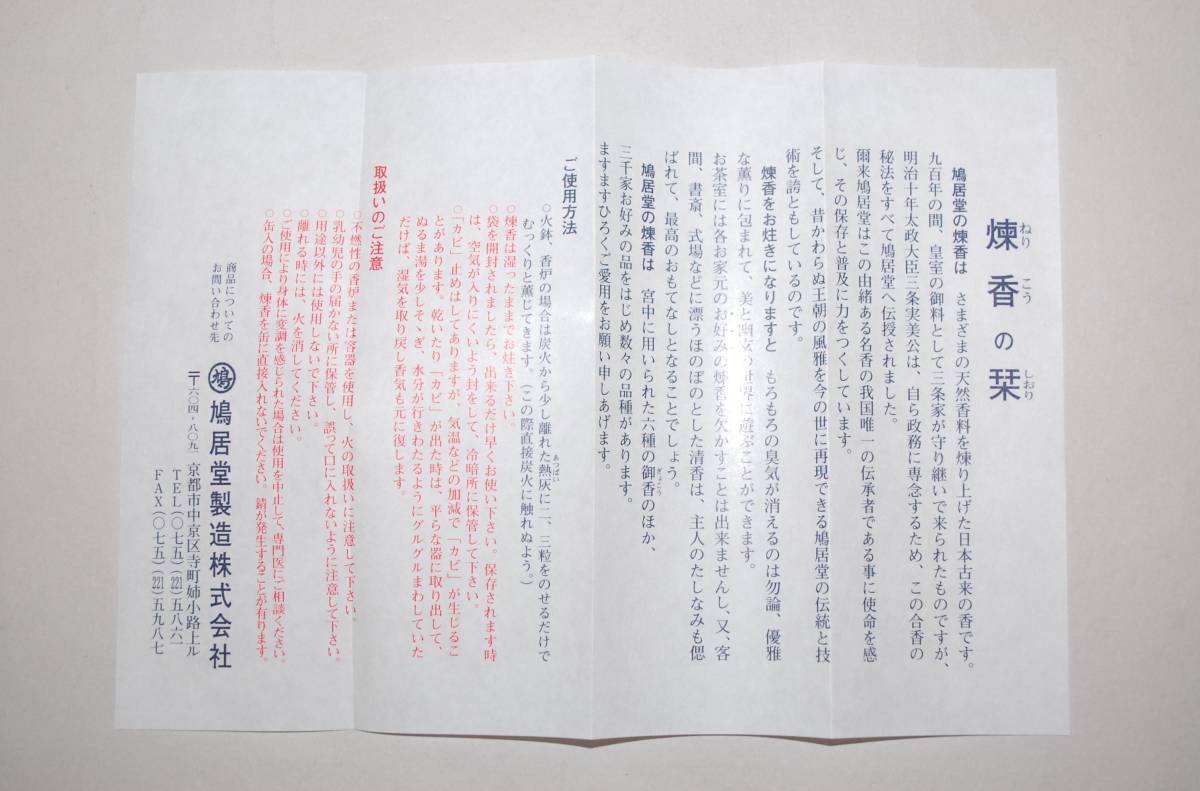 煉香の栞
鳩居堂の煉香は　さまざまの天然香料を煉り上げた日本古来の香です。
九百年の間、皇室の御料として三条家が守り継いで来られたものですが、
明治十年太政大臣三条実美公は、自ら政務に専念するため、この合香の
秘法をすべて鳩居堂へ伝授されました。
爾来鳩居堂はこの由緒ある名香の我国唯一の伝承者である事に使命を感
じ、その保存と普及に力をつくしています。
そして、昔かわらぬ王朝の風雅を今の世に再現できる鳩居堂の伝統と技
術を誇ともしているのです。
煉香をお炷きになりますと　もろもろの臭気が消えるのは勿論、優雅
な薫りに包まれて、美と幽玄の世界に遊ぶことができます。
お茶室には各お家元のお好みの煉香を欠かすことは出来ませんし、又、客
間、書斎、式場などに漂うほのぼのとした清香は、主人のたしなみも偲
ばれて、最高のおもてなしとなることでしょう。
鳩居堂の煉香は　宮中に用いられた六種の御香のほか、
三千家お好みの品をはじめ数々の品種があります。
ますますひろくご愛用をお願い申しあげます。
ご使用方法
○火鉢、香炉の場合は炭火から少し離れた熱灰に二、三粒をのせるだけで
むっくりと薫じてきます。（この際直接炭火に触れぬよう。）
○煉香は湿ったままでお炷き下さい。
○袋を開封されましたら、出来るだけ早くお使い下さい。保存されます時
は、空気が入りにくいよう封をして、冷暗所に保管して下さい。
○「カビ」止めはしてありますが、気温などの加減で「カビ」が生じるこ
とがあります。乾いたり「カビ」が出た時は、平らな器に取り出して、
ぬるま湯を少しそゝぎ、水分が行きわたるようにグルグルまわしていた
だけば、湿気を取り戻し香気も元に復します。
取扱いのご注意
○不燃性の香炉または容器を使用し、火の取扱いに注意して下さい。
○乳幼児の手の届かない所に保管し、誤って口に入れないように注意して下さい。
○用途以外には使用しないで下さい。
○離れる時には、火を消してください。
○ご使用により身体に変調を感じられた場合は使用を中止して、専門医にご相談ください。
○缶入の場合、煉香を缶に直接入れないでください。錆が発生することが有ります。
商品についての
お問い合わせ先
鳩 鳩居堂製造株式会社
〒六〇四-八〇九一 京都市中京区寺町姉小路上ル
TEL（〇七五）（221）五八六一
FAX（〇七五）（221）五九八七